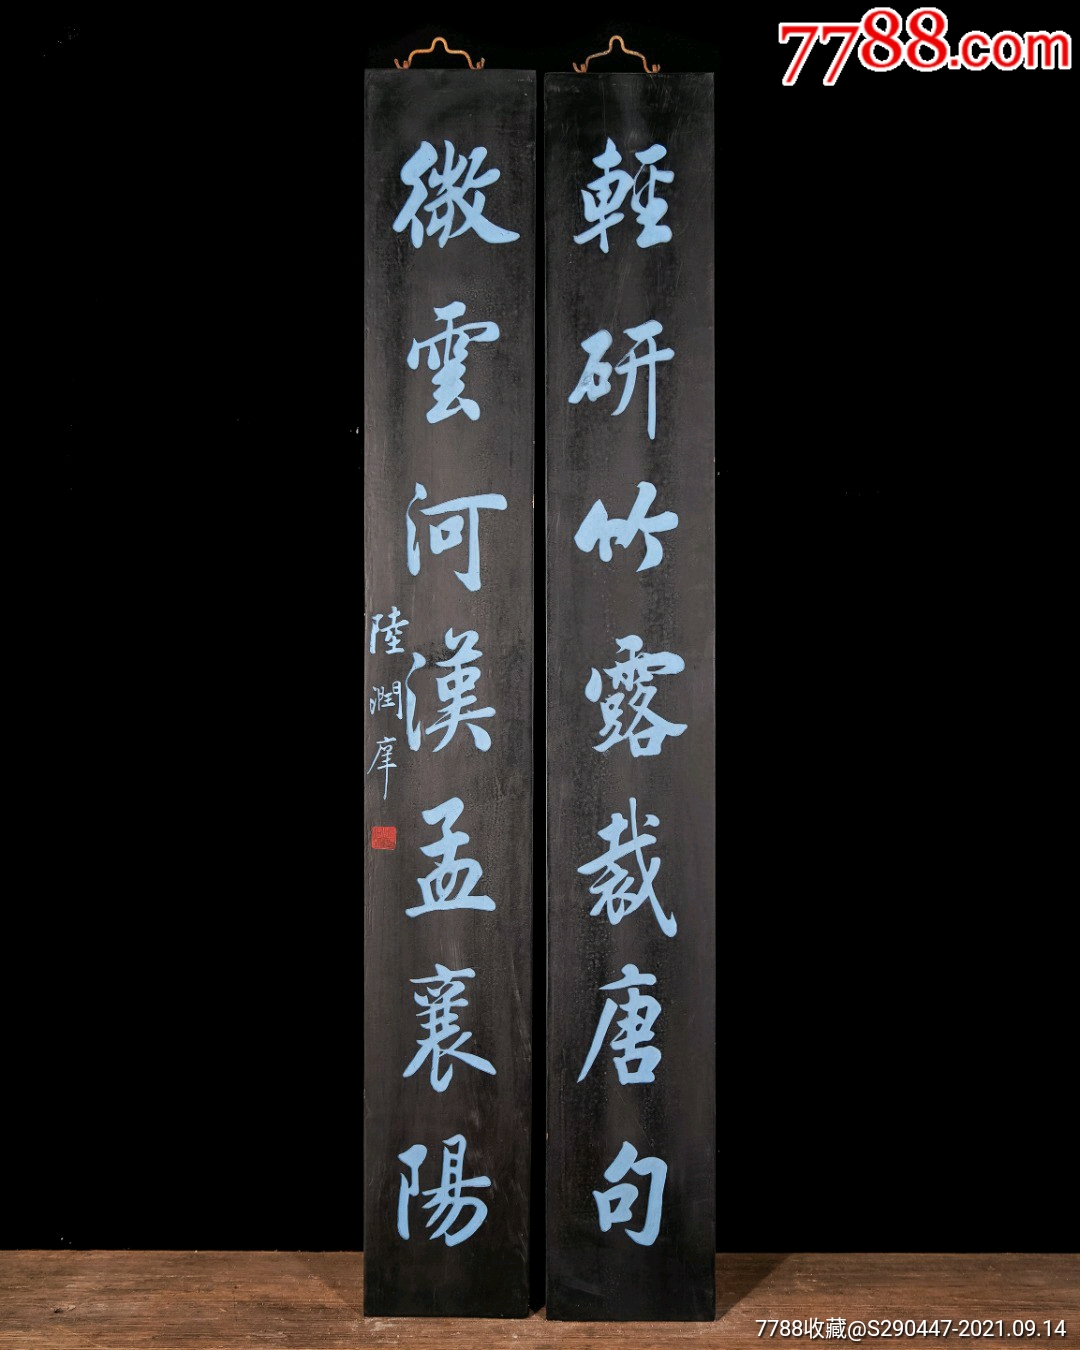 7788.com
輕研竹露裁唐句
微雲河漢孟襄陽
陸潤庠
7788收藏@S290447-2021.09.14